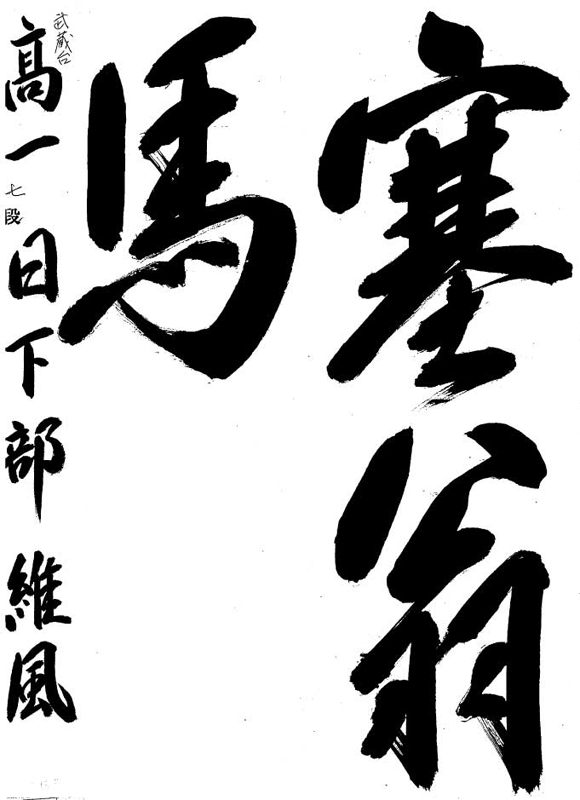 塞翁
馬
武蔵台
高一 七段 日下部維風